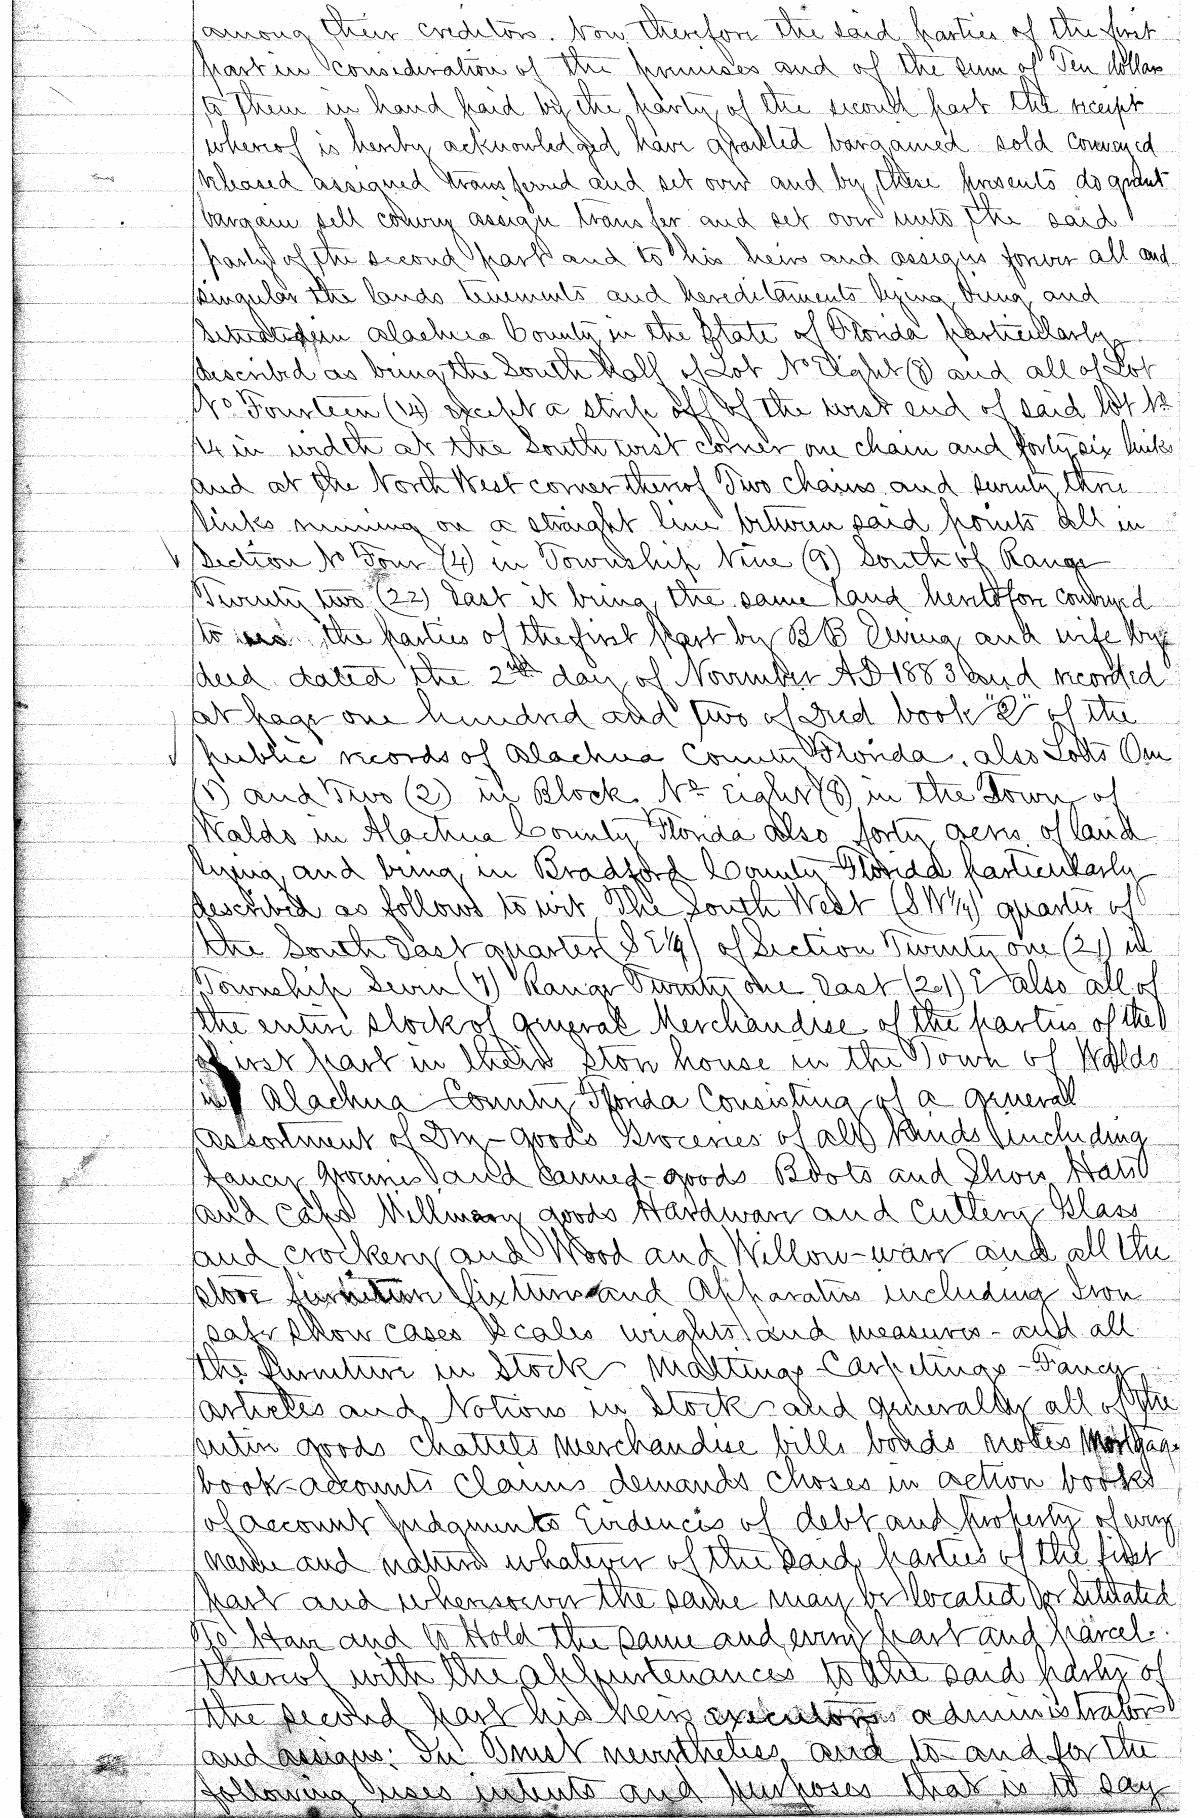 among their creditors. Now therefore the said parties of the first
part in consideration of the premises and of the sum of Ten dollars
to them in hand paid by the party of the second part the receipt
whereof is hereby acknowledged have granted bargained sold conveyed
released assigned transferred and set over and by these presents do grant
bargain sell convey assign transfer and set over unto the said
party of the second part and to his heirs and assigns forever all and
singular the lands tenements and hereditaments lying being and
situated in Alachua County in the State of Florida particularly
described as being the South half of Lot No Eight (8) and all of Lot
No Fourteen (14) except a strip off of the west end of said lot No
14 in width at the South west corner one chain and forty six links
and at the North West corner thereof Two chains and seventy three
links running on a straight line between said points all in
Section No Four (4) in Township Nine (9) South of Range
Twenty two (22) East it being the same land heretofore conveyed
to the parties of the first part by B B and wife by
deed dated the 2nd day of November AD 1883 and recorded
at page one hundred and two of Deed book of the
public records of Alachua County Florida. also Lotts One
(1) and Two (2) in Block No Eight (8) in the Town of
Waldo in Alachua County Florida also forty acres of land
lying and being in Bradford County Florida particularly
described as follows to wit The South West (SW¼) quarter of
the South East quarter (SE¼) of Section Twenty one (21) in
Township Seven (7) Range Twenty one East (21) & also all of
the entire stock of general Merchandise of the parties of the
first part in their Store house in the Town of Waldo
in Alachua County Florida Consisting of a general
assortment of Dry-goods Groceries of all kinds including
fancy groceries and canned-goods Boots and Shoes Hats
and caps Millinery goods Hardware and Cutlery Glass
and crockery and Wood and Willow-ware and all the
store furniture fixtures and Apparatus including Iron
safe show cases Scales weights and measures - and all
the Furniture in Stock - Mattings - Carpetings - Fancy
articles and Notions in Stock and generally all of the
entire goods chattels merchandise bills bonds notes Mortgage
book-accounts claims demands choses in action books
of account Judgments Evidences of debt and property of every
name and nature whatever of the said parties of the first
part and wheresoever the same may be located or situated
To Have and to Hold the same and every part and parcel
thereof with the appurtenances to the said party of
the second part his heirs executors administrators
and assigns: In Trust nevertheless and to and for the
following uses intents and purposes that is to say